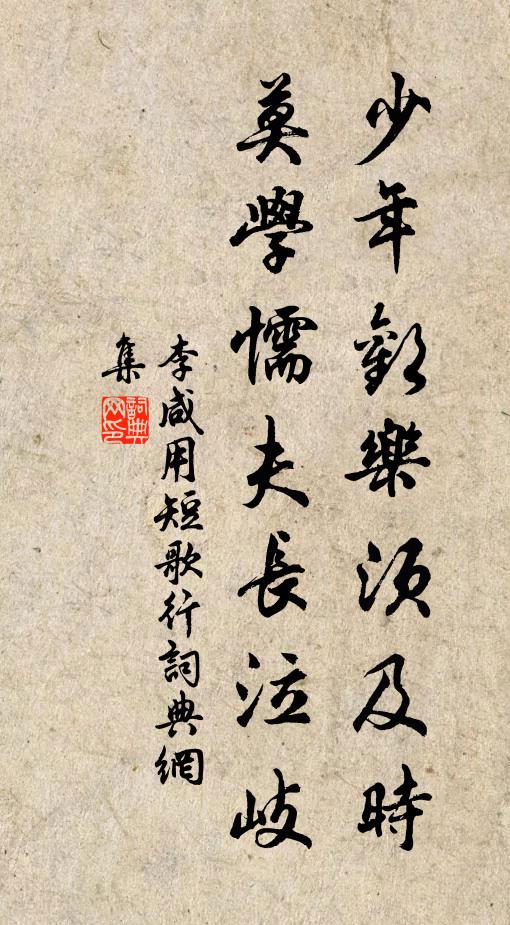 少年歡樂須及時
莫學懦夫長泣岐
李咸用短歌行詞典網
集
詞典网印